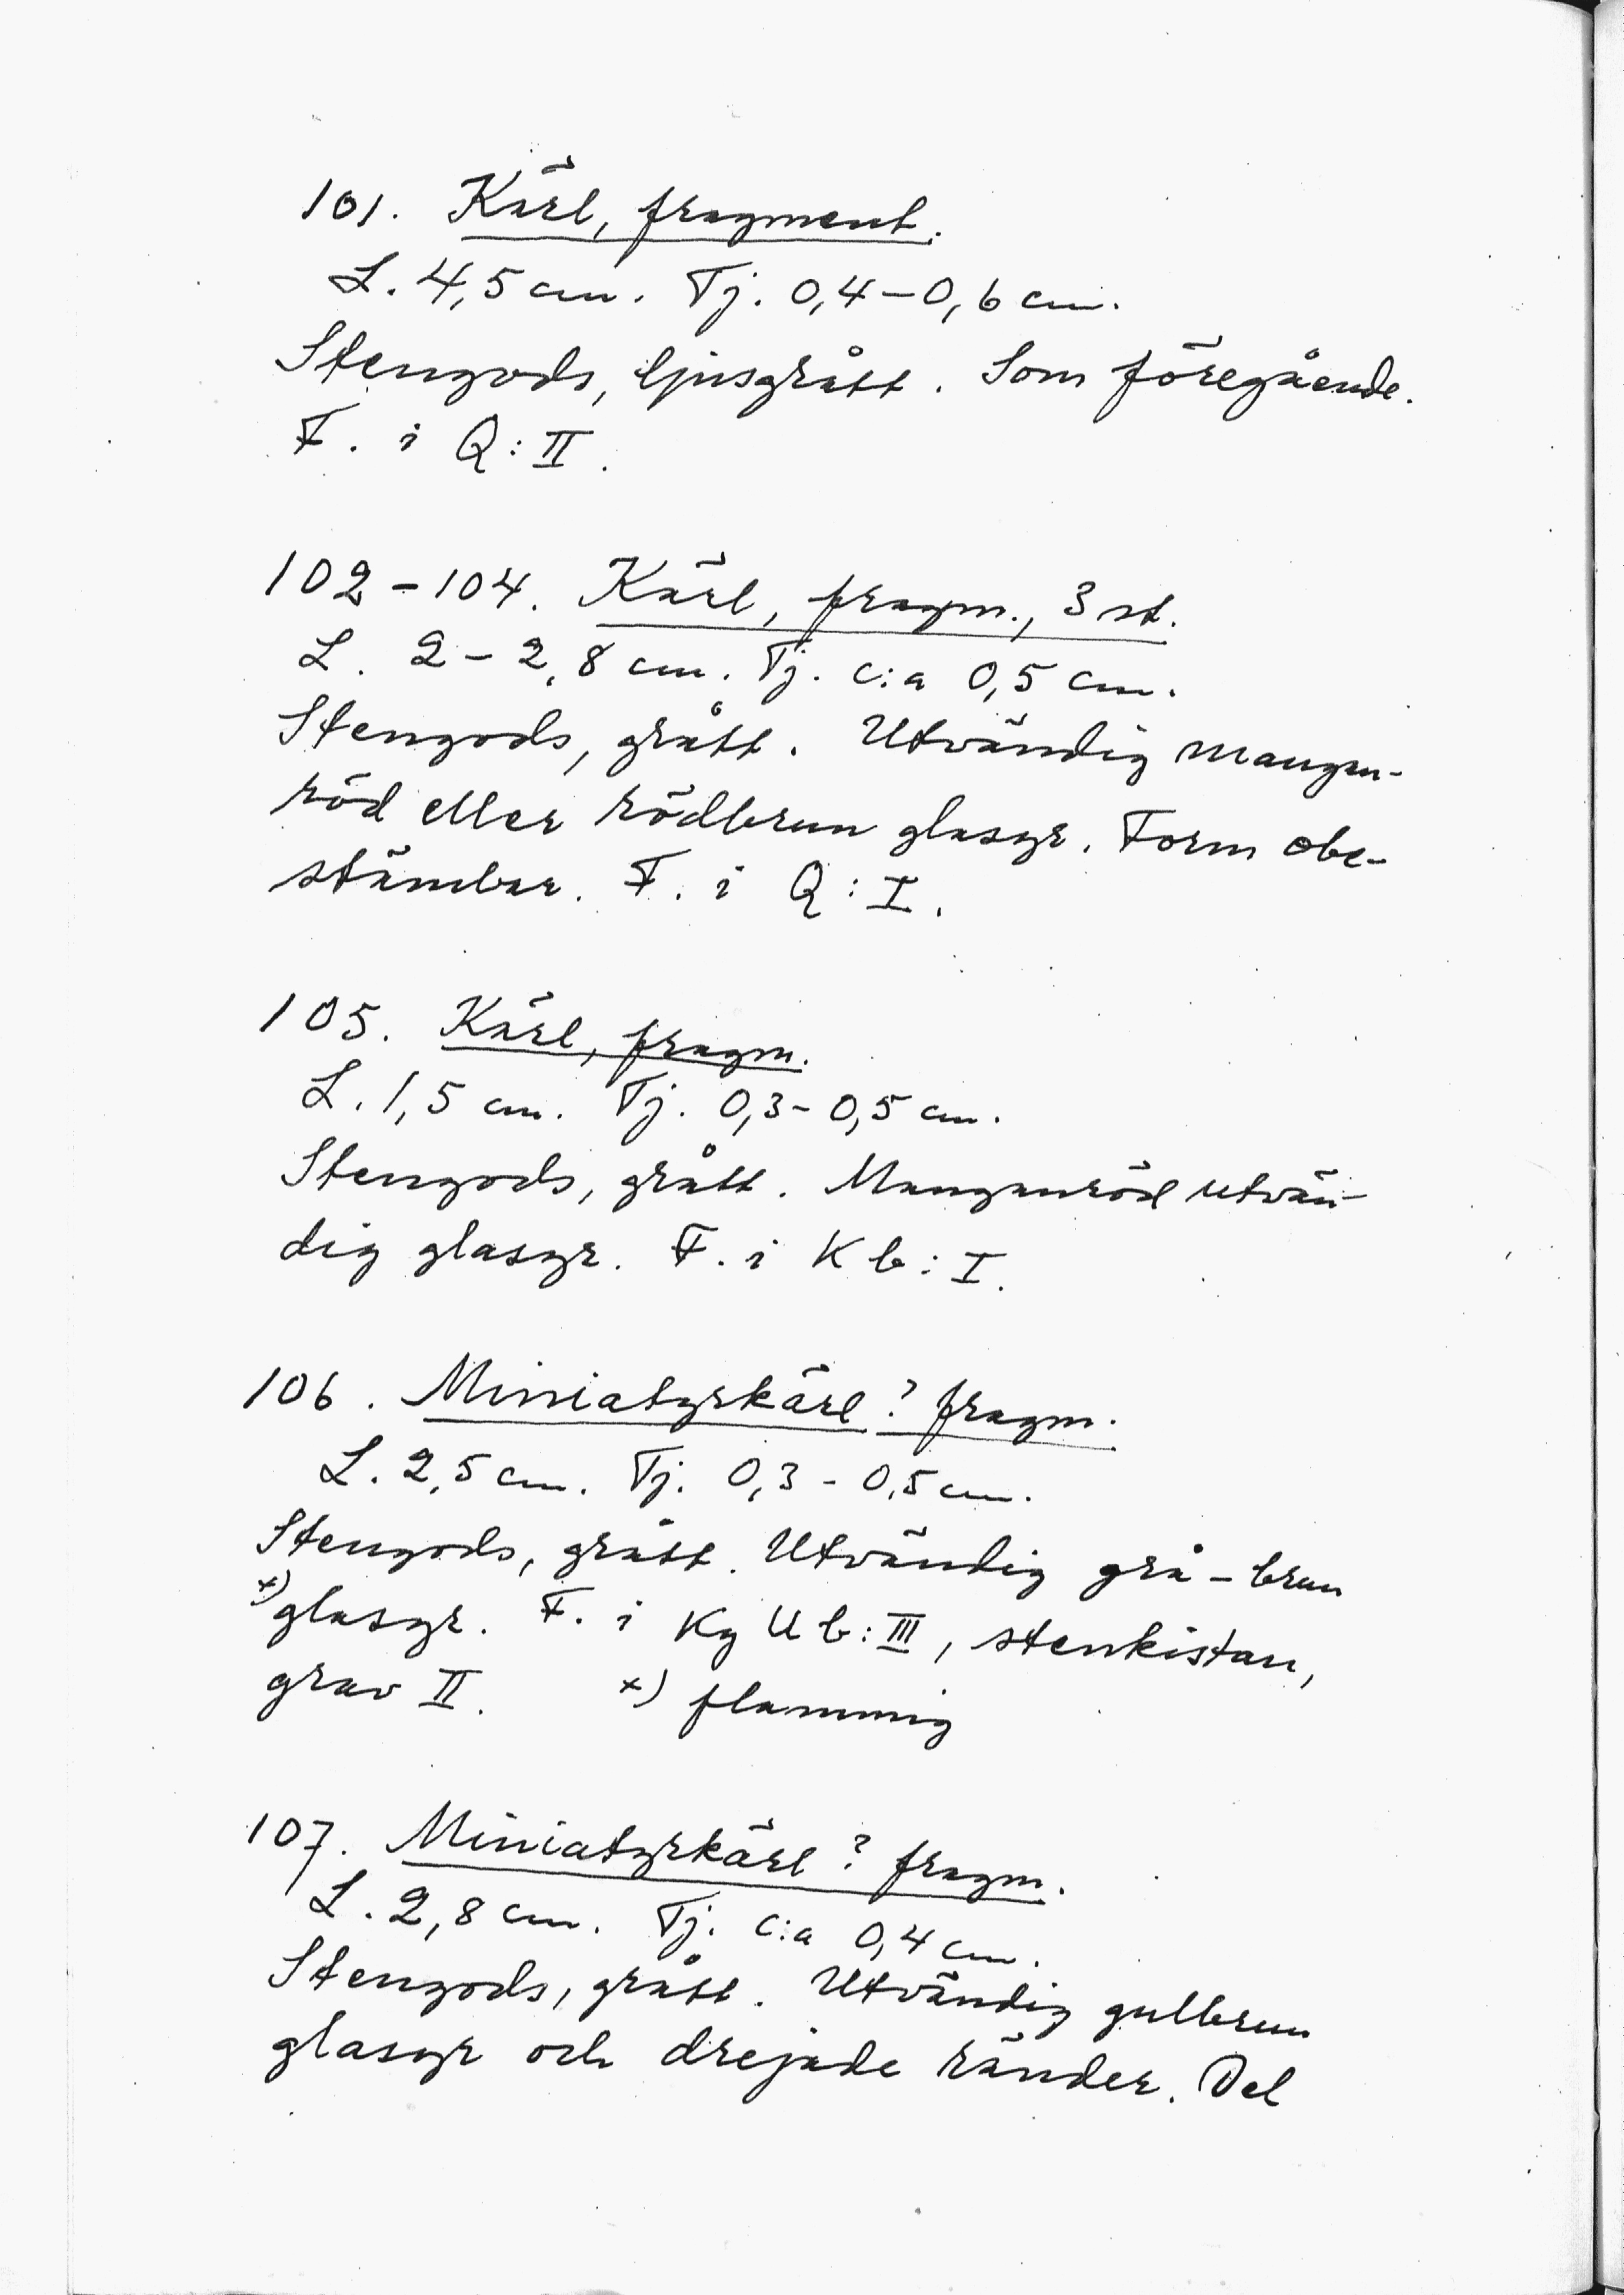 101. Kärl, fragment.
L. 4,5 cm. Tj. 0,4-0,6 cm.
Stengods, ljusgrått. Som föregående.
F. i Q:II.
102-104. Kärl, fragm., 3 st.
L. 2-2,8 cm. Tj. c:a 0,5 cm.
Stengods, grått. Utvändig mangan-
röd eller rödbrun glasyr. Form obe-
stämbar. F. i Q:I.
105. Kärl, fragm.
L. 1,5 cm. Tj. 0,3-0,5 cm.
Stengods, grått. Manganröd utvän-
dig glasyr. F. i Kb:I.
106. Miniatyrkärl? fragm.
L. 2,5 cm. Tj. 0,3-0,5 cm.
Stengods, grått. Utvändig grå-brun
x) glasyr. F. i Kg Ub:III, stenkistan,
grav II. x) flammig
107. Miniatyrkärl? fragm.
L. 2,8 cm. Tj. c:a 0,4 cm.
Stengods, grått. Utvändig gulbrun
glasyr och drejade ränder. Del